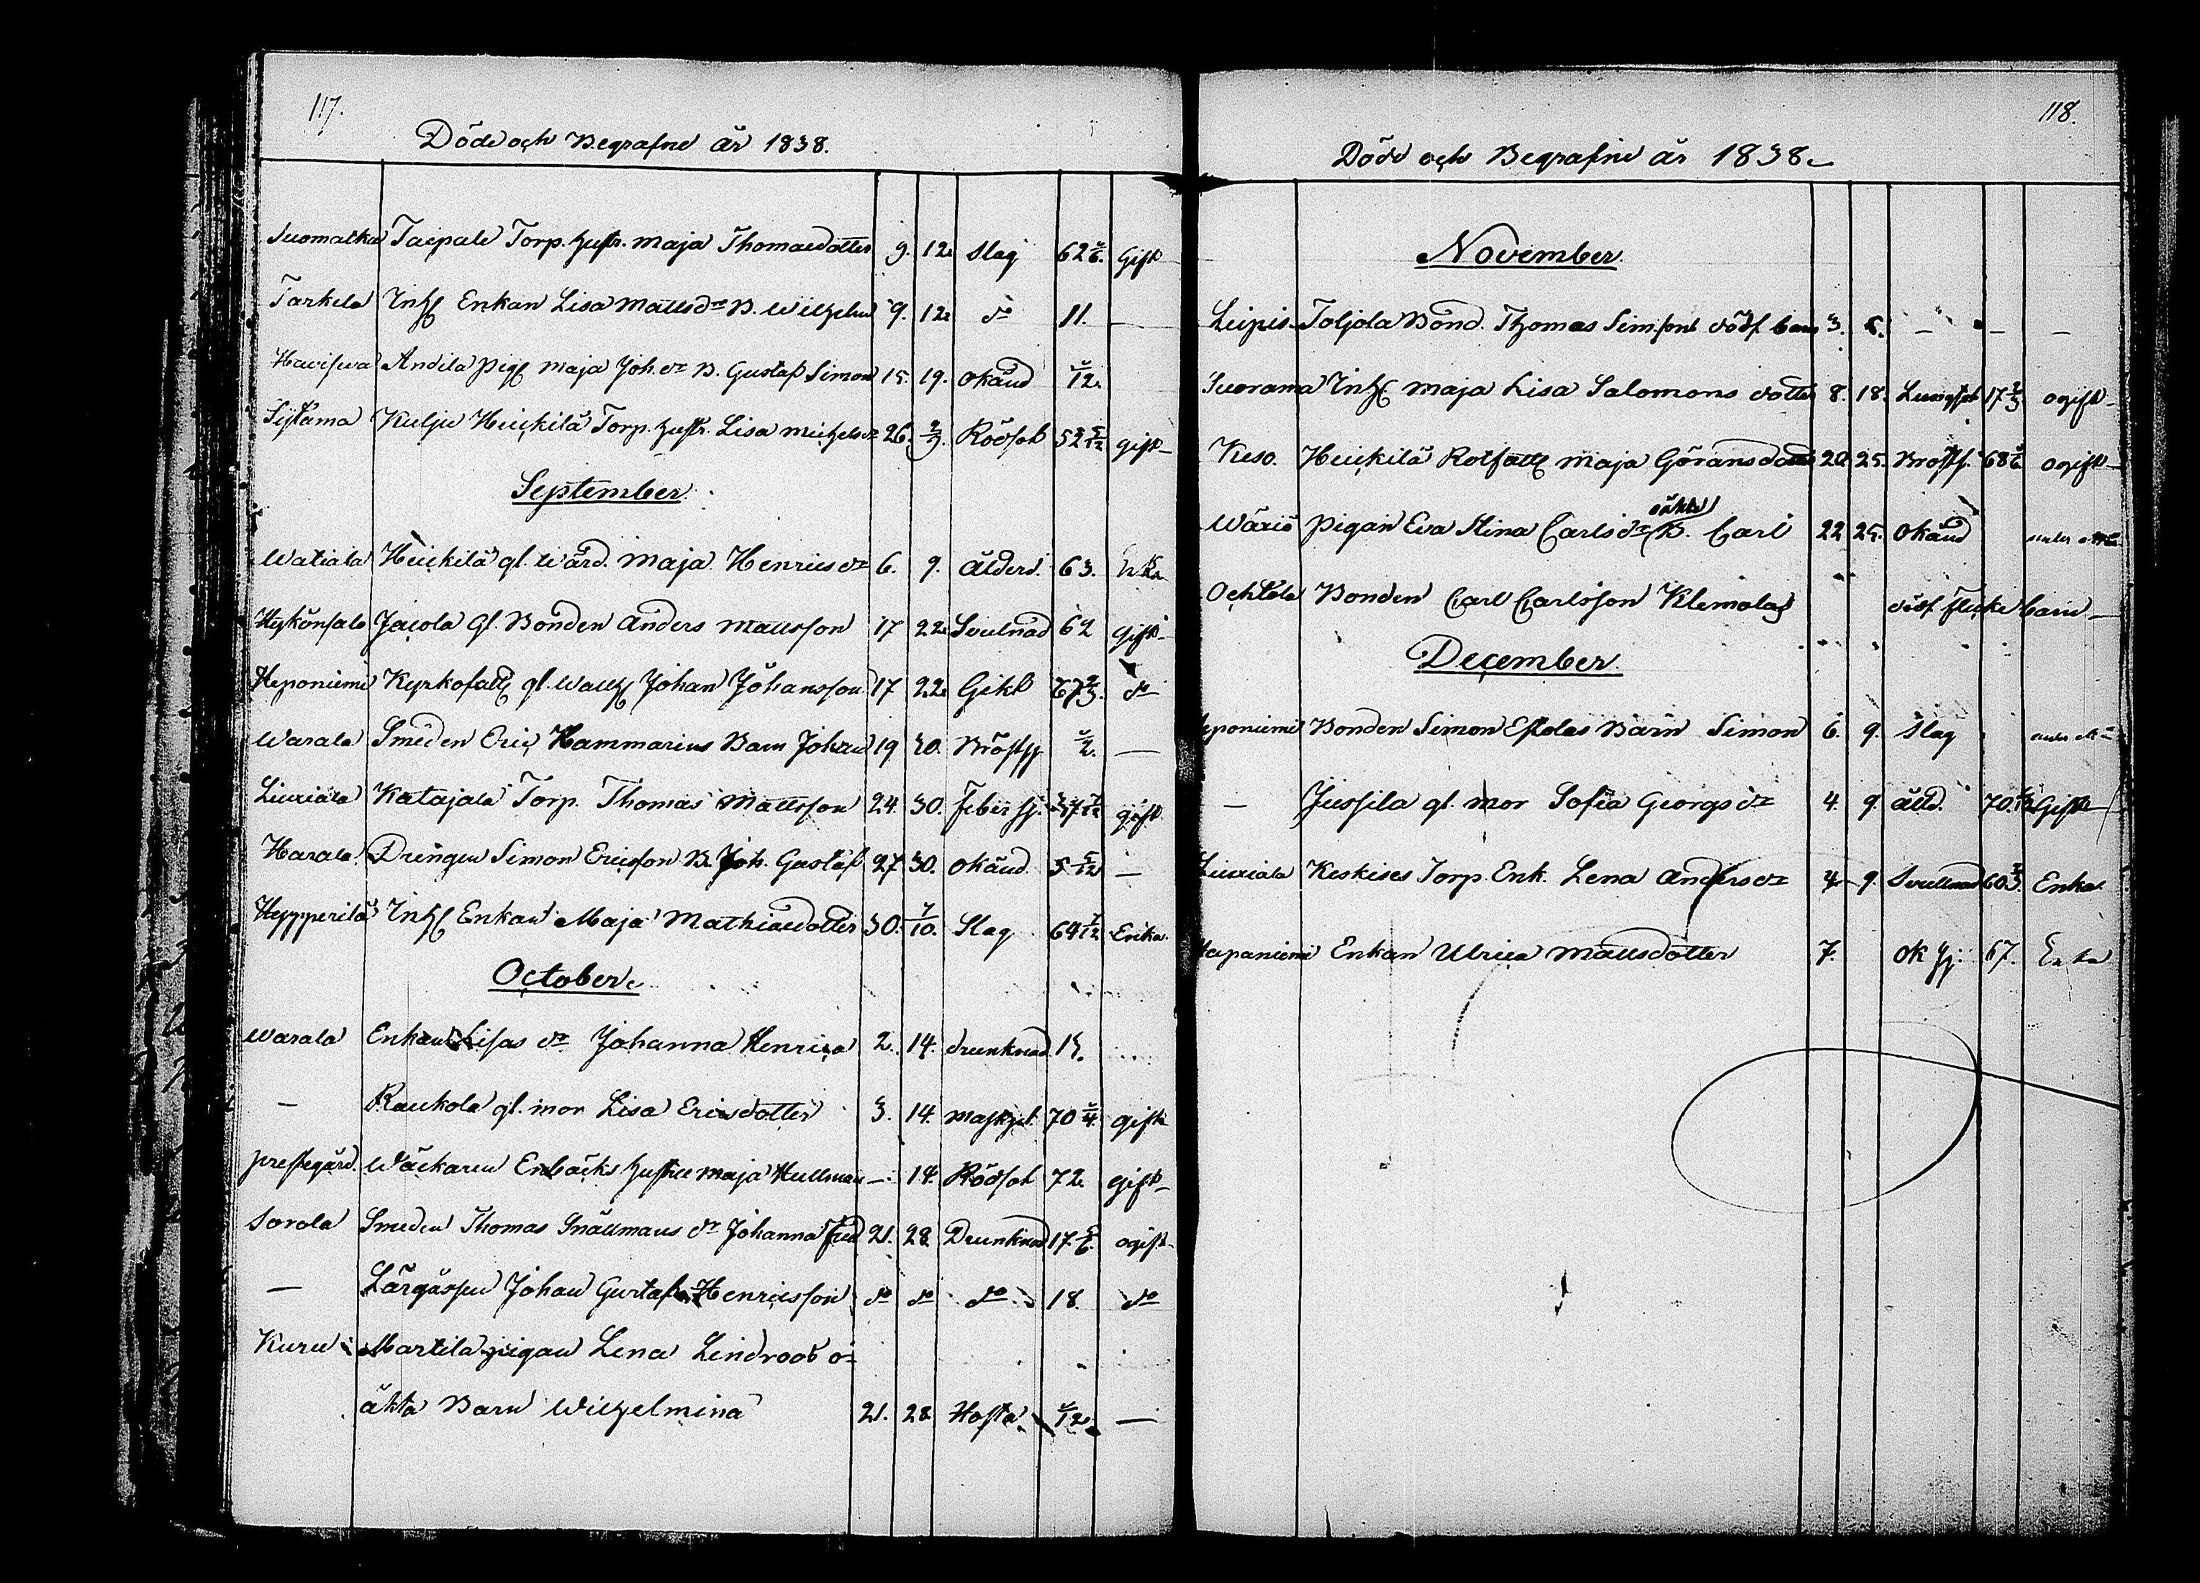 117.
Döde och Begrafne år 1838.
Suomatka Taipale Torp. hustr. Maja Thomasdotter 9. 12. Slag 62 Gift
Tarkila Inh Enkan Lisa Mattsdr B. Wilhelm 9. 12. do 11. —
Havisva Andila pig Maja Joh.dr B. Gustaf Simon 15. 19. Okänd /12.
Kulju Heickilä Torp. hustr. Lisa Michelsdr 26. 2/9. Rödsot 52 5/12 gift
September
Watiala Heickilä gl. Wärd. Maja Henricsdr 6. 9. Ålderd. 63. Enka
Jacola Gl. Bonden Anders Mattsson 17 22. Svullnad 62 Gift
Heponiemi Kyrkofatt gl. Johan Johansson 17 22. Gikt 67 2/3. do
Warala Smeden Eric Hammarins Barn Johan 19 30. Bröstsj /2. —
Liuxiala Katajala Torp. Thomas Mattsson 24. 30. Febersj. 37 7/12 gift
Harala. Drängen Simon Ericson B. Joh. Gustaf 27 30. Okänd. 5 5/12 —
Hyypperilä Inh Enkan Maja Mathiasdotter 30. 7/10. Slag 64 7/12 Enka.
October.
Warala Enkan Lisas dr Johanna Henrica 2. 14. drunknad 15.
— Raukola gl. mor Lisa Ericsdotter 3. 14. 70 /4. gift
prestegård. Wäckaren Enbäcks hustru Maja Hellman —. 14. Rödsot 72. gift
Sorola Smeden Thomas Snällmans dr Johanna 21. 28. Drunknad 17. 5/6. ogift
— Lärgåssen Johan Gustaf Henricsson do do do 18. do
Kuru Martila pigan Lena Lindroos o=
äkta Barn Wilhelmina 21. 28. Hosta. /12. —
118.
Döde och Begrafne år 1838.
November.
Leipis Toljola Bond. Thomas Simsons dödf. barn 3. — — —
Suorama Inh. Maja Lisa Salomons dotter 8. 18. Lungsot 17 2/3 ogift
Keso. Heickilä Rotfatt Maja Göransdotter 20. 25. Bröstsj. 68 ogift
oäkta
Wäxiö Pigan Eva Stina Carlsdr B. Carl 22 25. Okänd
Ochtola Bonden Carl Carlsson Klemolas dödf. flicke barn —
December.
Bonden Simon Eskolas Barn Simon 6. 9. Slag
— Jussila gl. mor Sofia Georgsdr 4. 9. åldd. 70. Gift
Liuxiala Keskises Torp. Enk. Lena Andersdr 4 9. Svullnad 60 2/3. Enka.
Haapaniemi Enkan Ulrica Mattsdotter 7. Ok sj. 67. Enka